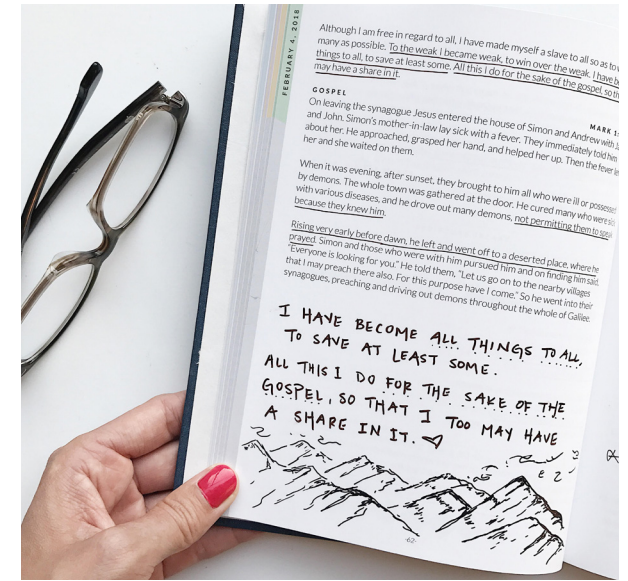 FEBRUARY 4, 2018
Although I am free in regard to all, I have made myself a slave to all so as to
many as possible. To the weak I became weak, to win over the weak. I have
things to all, to save at least some. All this I do for the sake of the gospel, so
may have a share in it.
GOSPEL
MARK 1:
On leaving the synagogue Jesus entered the house of Simon and Andrew with
and John. Simon's mother-in-law lay sick with a fever. They immediately told him
about her. He approached, grasped her hand, and helped her up. Then the fever
her and she waited on them.
When it was evening, after sunset, they brought to him all who were ill or possessed
by demons. The whole town was gathered at the door. He cured many who were
with various diseases, and he drove out many demons, not permitting them to
because they knew him.
Rising very early before dawn, he left and went off to a deserted place, where he
prayed. Simon and those who were with him pursued him and on finding him said,
"Everyone is looking for you." He told them, "Let us go on to the nearby villages
that I may preach there also. For this purpose have I come." So he went into their
synagogues, preaching and driving out demons throughout the whole of Galilee.
I HAVE BECOME ALL THINGS TO ALL,
TO SAVE AT LEAST SOME.
ALL THIS I DO FOR THE SAKE OF THE
GOSPEL, SO THAT I TOO MAY HAVE
A SHARE IN IT.
·62·